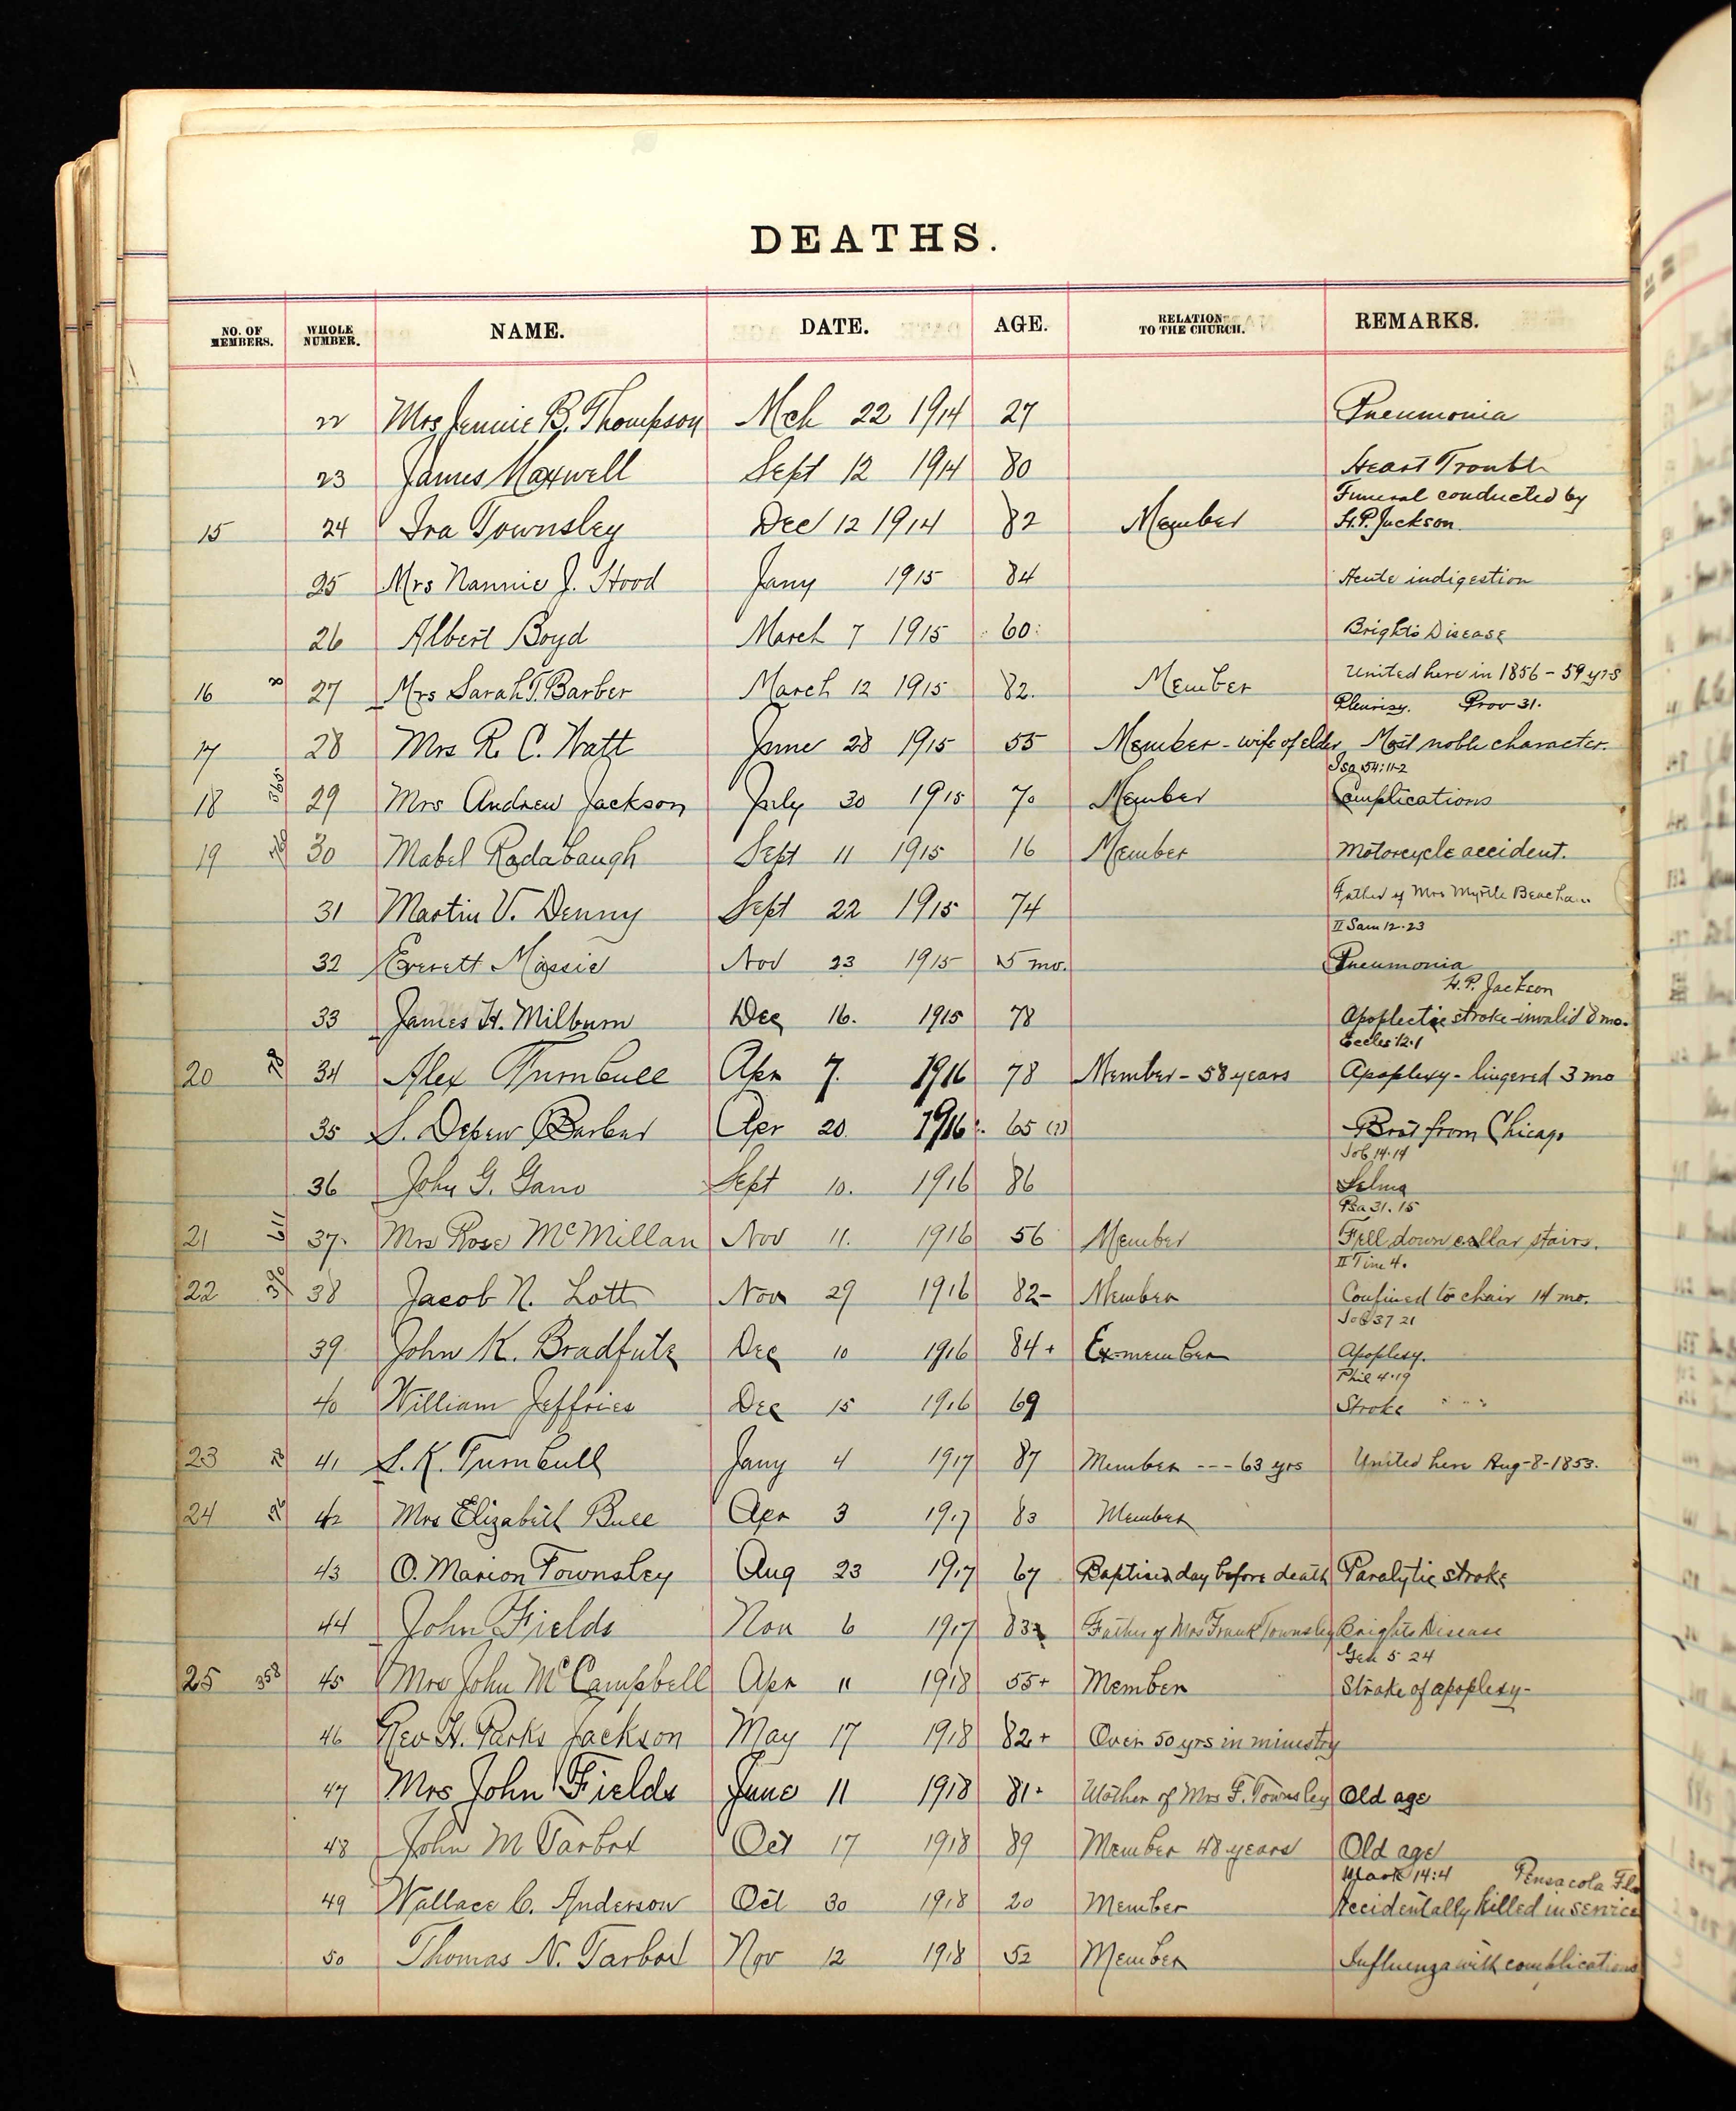 DEATHS.
NO. OF MEMBERS. WHOLE NUMBER. NAME. DATE. AGE. RELATION TO THE CHURCH. REMARKS.
22 Mrs Jennie B. Thompson Mch 22 1914 27 Pneumonia
23 James Maxwell Sept 12 1914 80 Heart Trouble
Funeral conducted by
15 24 Ira Townsley Dec 12 1914 82 Member H.P. Jackson.
25 Mrs Nannie J. Hood Jany 1915 84 Acute indigestion
26 Albert Boyd March 7 1915 60 Brights Disease
United here in 1856 - 59 yrs
16 8 27 Mrs Sarah T. Barber March 12 1915 82. Member Pleurisy. Prov 31.
17 28 Mrs R. C. Watt June 28 1915 55 Member - wife of elder Most noble character.
Isa 54:11-2
18 565 29 Mrs Andrew Jackson July 30 1915 70 Member Complications
19 30 Mabel Radabaugh Sept 11 1915 16 Member Motorcycle accident.
Father of Mrs Myrtle Beacham
31 Martin V. Denny Sept 22 1915 74 II Sam 12.23
32 Everett Massie Nov 23 1915 5 mo. Pneumonia
H.P. Jackson
33 James H. Milburn Dec 16. 1915 78 Apoplectic stroke - invalid 8 mo.
Eccles 12.1
20 78 34 Alex Turnbull Apr 7. 1916 78 Member - 58 years Apoplexy - lingered 3 mo
35 S. Depew Barber Apr 20. 1916 65 (?) Brot from Chicago
Job 14.14
36 John G. Gano Sept 10. 1916 86 Selma
Psa 31.15
21 611 37. Mrs Rose McMillan Nov 11. 1916 56 Member Fell down cellar stairs.
II Tim 4.
22 390 38 Jacob N. Lott Nov 29 1916 82- Member Confined to chair 14 mo.
Job 37 21
39 John K. Bradfute Dec 10 1916 84+ Ex-member Apoplexy.
Phil 4.19
40 William Jeffries Dec 15 1916 69 Stroke " " "
23 78 41 S. K. Turnbull Jany 4 1917 87 Member --- 63 yrs United here Aug-8-1853.
24 42 Mrs Elizabeth Bull Apr 3 1917 83 Member
43 O. Marion Townsley Aug 23 1917 67 Baptised day before death Paralytic stroke
44 John Fields Nov 6 1917 83 Father of Mrs Frank Townsley Brights Disease
Gen 5 24
25 358 45 Mrs John McCampbell Apr 11 1918 55+ Member Stroke of apoplexy-
46 Rev H. Parks Jackson May 17 1918 82+ Over 50 yrs in ministry
47 Mrs John Fields June 11 1918 81+ Mother of Mrs F. Townsley Old age
48 John M Tarbox Oct 17 1918 89 Member 48 years Old age
Mark 14:4 Pensacola Fla
49 Wallace C. Anderson Oct 30 1918 20 Member Accidentally killed in service
50 Thomas N. Tarbox Nov 12 1918 52 Member Influenza with complications